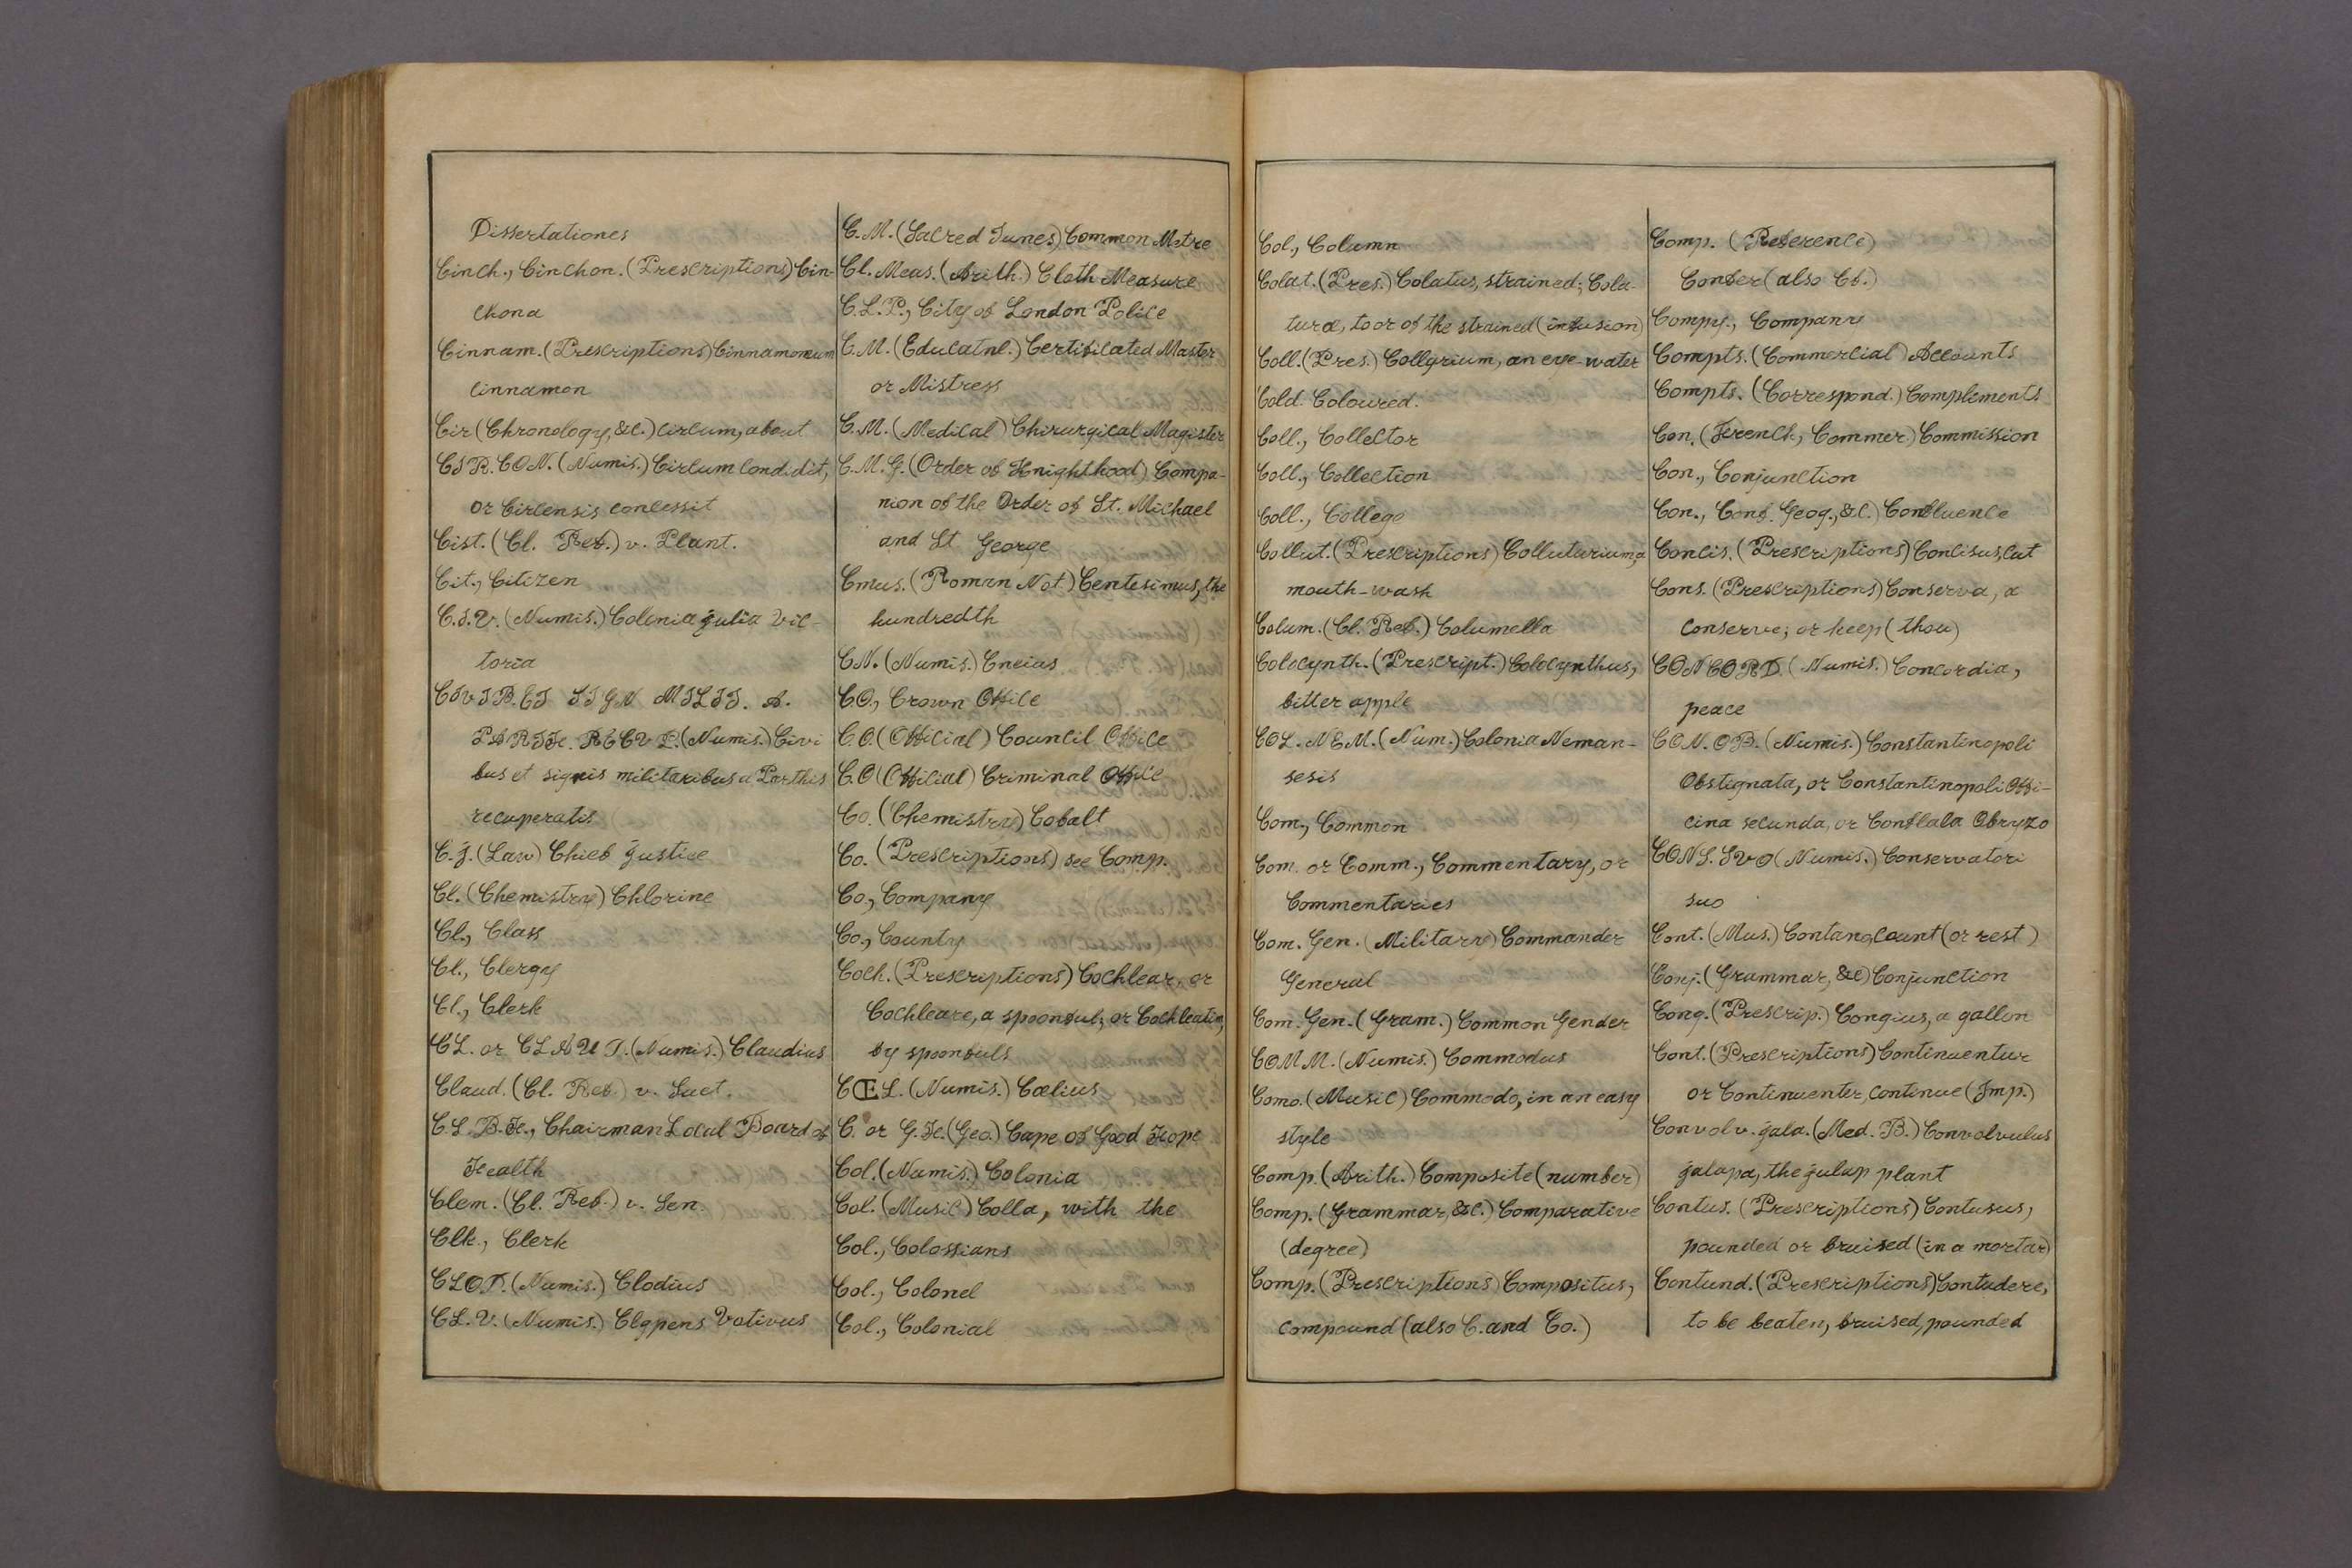 Dissertationes
Cinch., Cinchon. (Prescriptions) Cin-
chona
Cinnam. (Prescriptions) Cinnamomum
cinnamon
Cir (Chronology, &c.) circum, about
CIR. CON. (Numis.) Circum condidit,
or Circensis concessit
Cist. (Cl. Ref.) v. Plant.
Cit., Citizen
C.I.V. (Numis.) Colonia Julia Vic-
toria
CIVIB. ET SIGN MILIT. A.
PARTH. RECVP. (Numis.) Civi
bus et signis militaribus a Parthis
recuperatis
C.J. (Law) Chief Justice
Cl. (Chemistry) Chlorine
Cl., Class
Cl., Clergy
Cl., Clerk
CL. or CLAUD. (Numis.) Claudius
Claud. (Cl. Ref.) v. Suet.
C.L.B.H., Chairman Local Board of
Health
Clem. (Cl. Ref.) v. Sen.
Clk., Clerk
CLOD. (Numis.) Clodius
CL. V. (Numis.) Clypens Votivus
C.M. (Sacred Tunes) Common Metre
Cl. Meas. (Arith.) Cloth Measure
C.L.P., City of London Police
C.M. (Educatnl.) Certificated Master
or Mistress
C.M. (Medical) Chirurgical Magister
C.M.G. (Order of Knighthood) Compa-
nion of the Order of St. Michael
and St George
Cmus. (Roman Not.) Centesimus, the
hundredth
CN. (Numis.) Cneius
CO., Crown Office
C.O. (Official) Council Office
C.O (Official) Criminal Office
Co. (Chemistry) Cobalt
Co. (Prescriptions) see Comp.
Co., Company
Co., County
Coch. (Prescriptions) Cochlear, or
Cochleare, a spoonful; or Cochleatim,
by spoonfuls
CŒL. (Numis.) Cœlius
C. or G.H. (Geo.) Cape of Good Hope
Col. (Numis.) Colonia
Col. (Music) Colla, with the
Col., Colossians
Col., Colonel
Col., Colonial
Col., Column
Colat. (Pres.) Colatus, strained; Cola-
turæ, to or of the strained (infusion)
Coll. (Pres.) Collyrium, an eye-water
Cold. Coloured.
Coll., Collector
Coll., Collection
Coll., College
Collut. (Prescriptions) Colluturium, a
mouth-wash
Colum. (Cl. Ref.) Columella
Colocynth. (Prescript.) Colocynthus,
bitter apple
COL. NEM. (Num.) Colonia Neman-
sesis
Com., Common
Com. or Comm., Commentary, or
Commentaries
Com. Gen. (Military) Commander
General
Com. Gen. (Gram.) Common Gender
COMM. (Numis.) Commodus
Como. (Music) Commodo, in an easy
style
Comp. (Arith.) Composite (number)
Comp. (Grammar, &c.) Comparative
(degree)
Comp. (Prescriptions) Compositus,
compound (also C. and Co.)
Comp. (Reference)
Confer (also Cf.)
Compy., Company
Compts. (Commercial) Accounts
Compts. (Correspond.) Complements
Con. (French, Commer.) Commission
Con., Conjunction
Con., Conf. Geog., &c.) Confluence
Concis. (Prescriptions) Concisus, cut
Cons. (Prescriptions) Conserva, a
conserve; or keep (thou)
CONCORD. (Numis.) Concordia,
peace
CON. OB. (Numis.) Constantinopoli
Obstignata, or Constantinopoli Offi-
cina secunda, or Conflala Obryzo
CONS. SVO (Numis.) Conservatori
suo
Cont. (Mus.) Contano, count (or rest)
Conj. (Grammar, &c) Conjunction
Cong. (Prescrip.) Congius, a gallon
Cont. (Prescriptions) Continuentur
or Continuenter, continue (Imp.)
Convolv. jala. (Med. B.) Convolvulus
jalapa, the julap plant
Contus. (Prescriptions) Contusus,
pounded or bruised (in a mortar)
Contund. (Prescriptions) Contudere,
to be beaten, bruised, pounded